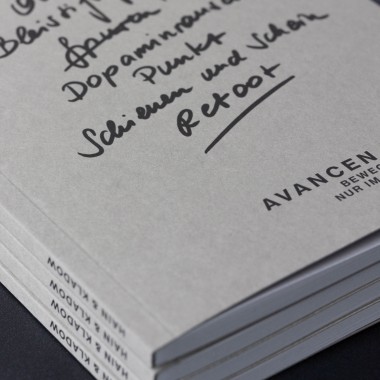 Spuren
Dopaminrausch
Punkt
Schienen und Schein
Retoot
AVANCEN
BEWEG
NUR IM
HAIN & KLADOW
HAIN & KLADOW
HAIN & KLADOW
HAIN & KLADOW